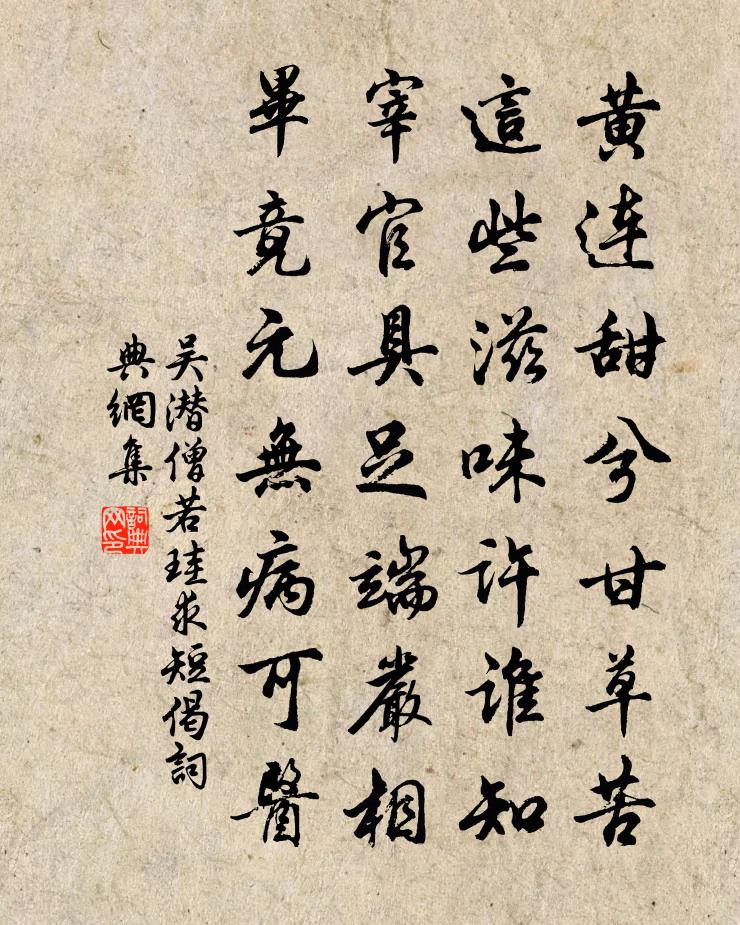 黄連甜兮甘草苦
這些滋味許誰知
宰官具足端嚴相
畢竟元無病可醫
吴潜僧若珪求短偈詞
典網集
詞典
网印